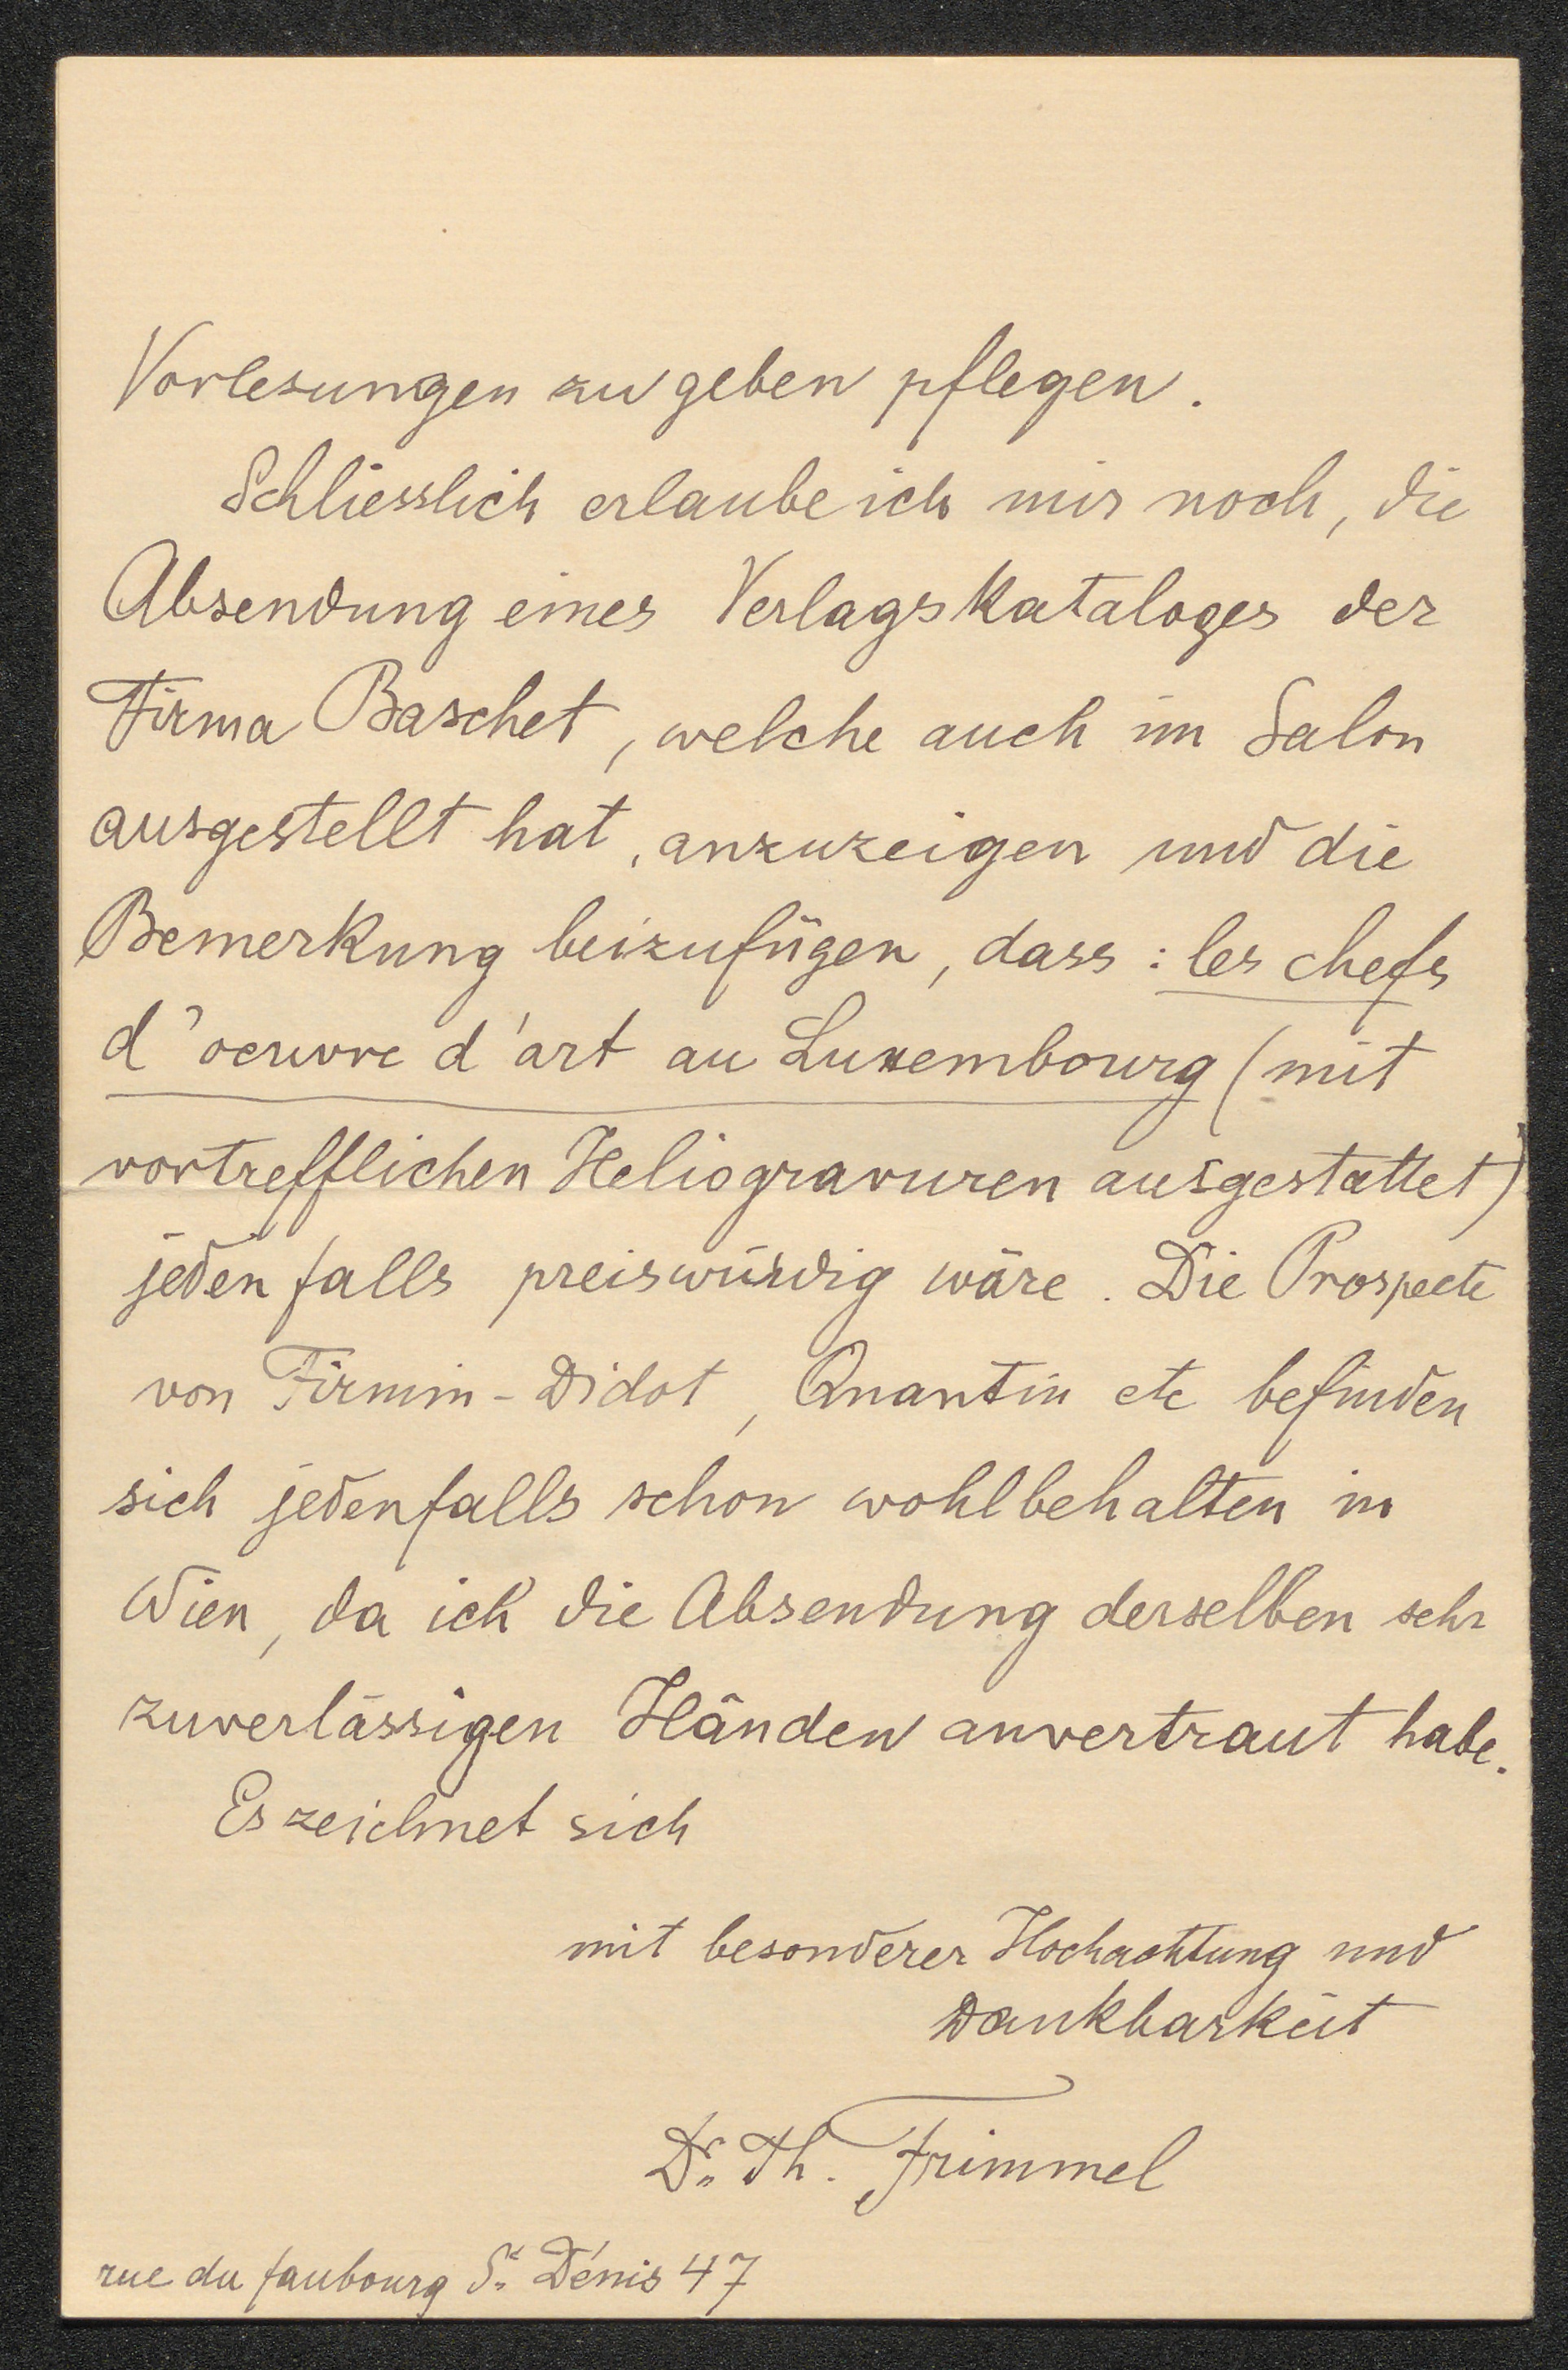 Vorlesungen zu geben pflegen.
Schliesslich erlaube ich mir noch, die
Absendung eines Verlagskataloges der
Firma Baschet, welche auch im Salon
ausgestellt hat, anzuzeigen und die
Bemerkung beizufügen, dass: les chefs
d'oeuvre d'art au Luxembourg (mit
vortrefflichen Heliogravuren ausgestattet)
jedenfalls preiswürdig wäre. Die Prospecte
von Firmin-Didot, Quantin etc befinden
sich jedenfalls schon wohlbehalten in
Wien, da ich die Absendung derselben sehr
zuverlässigen Händen anvertraut habe.
Es zeichnet sich
mit besonderer Hochachtung und
Dankbarkeit
Dr. Th. Frimmel
rue du faubourg St. Dénis 47